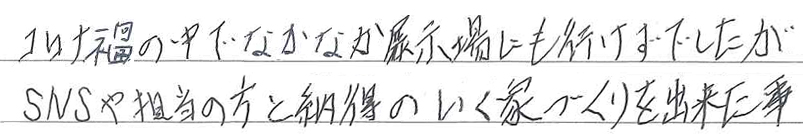 コロナ禍の中でなかなか展示場にも行けずでしたが
SNSや担当の方と納得のいく家づくりを出来た事